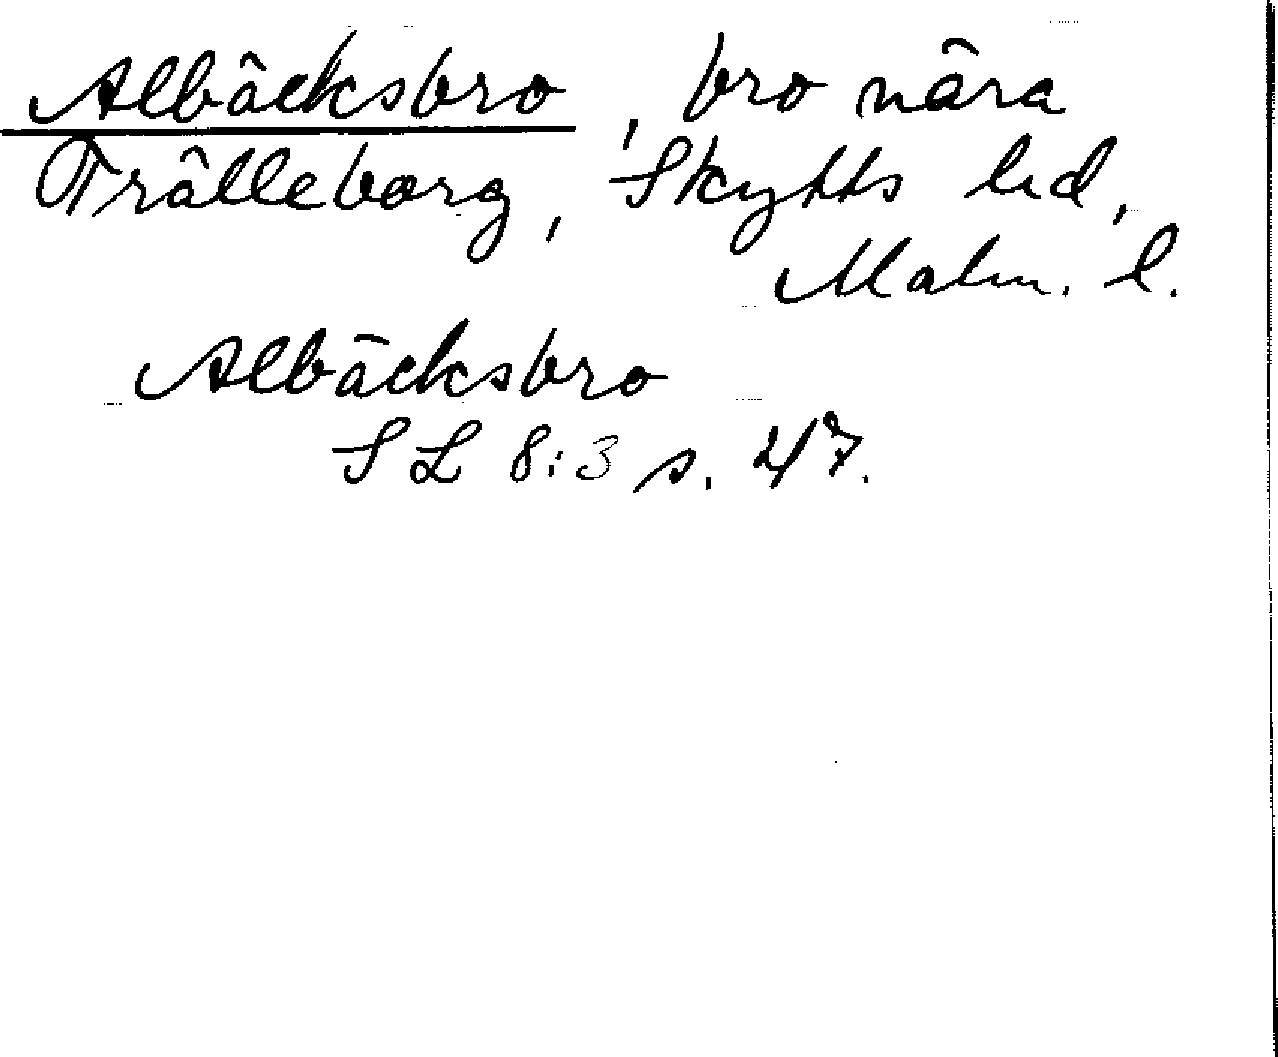 Albäcksbro, bro nära
Trälleborg, Skytts hd,
Malm. l.
Albäcksbro
SL 8:3 s. 47.